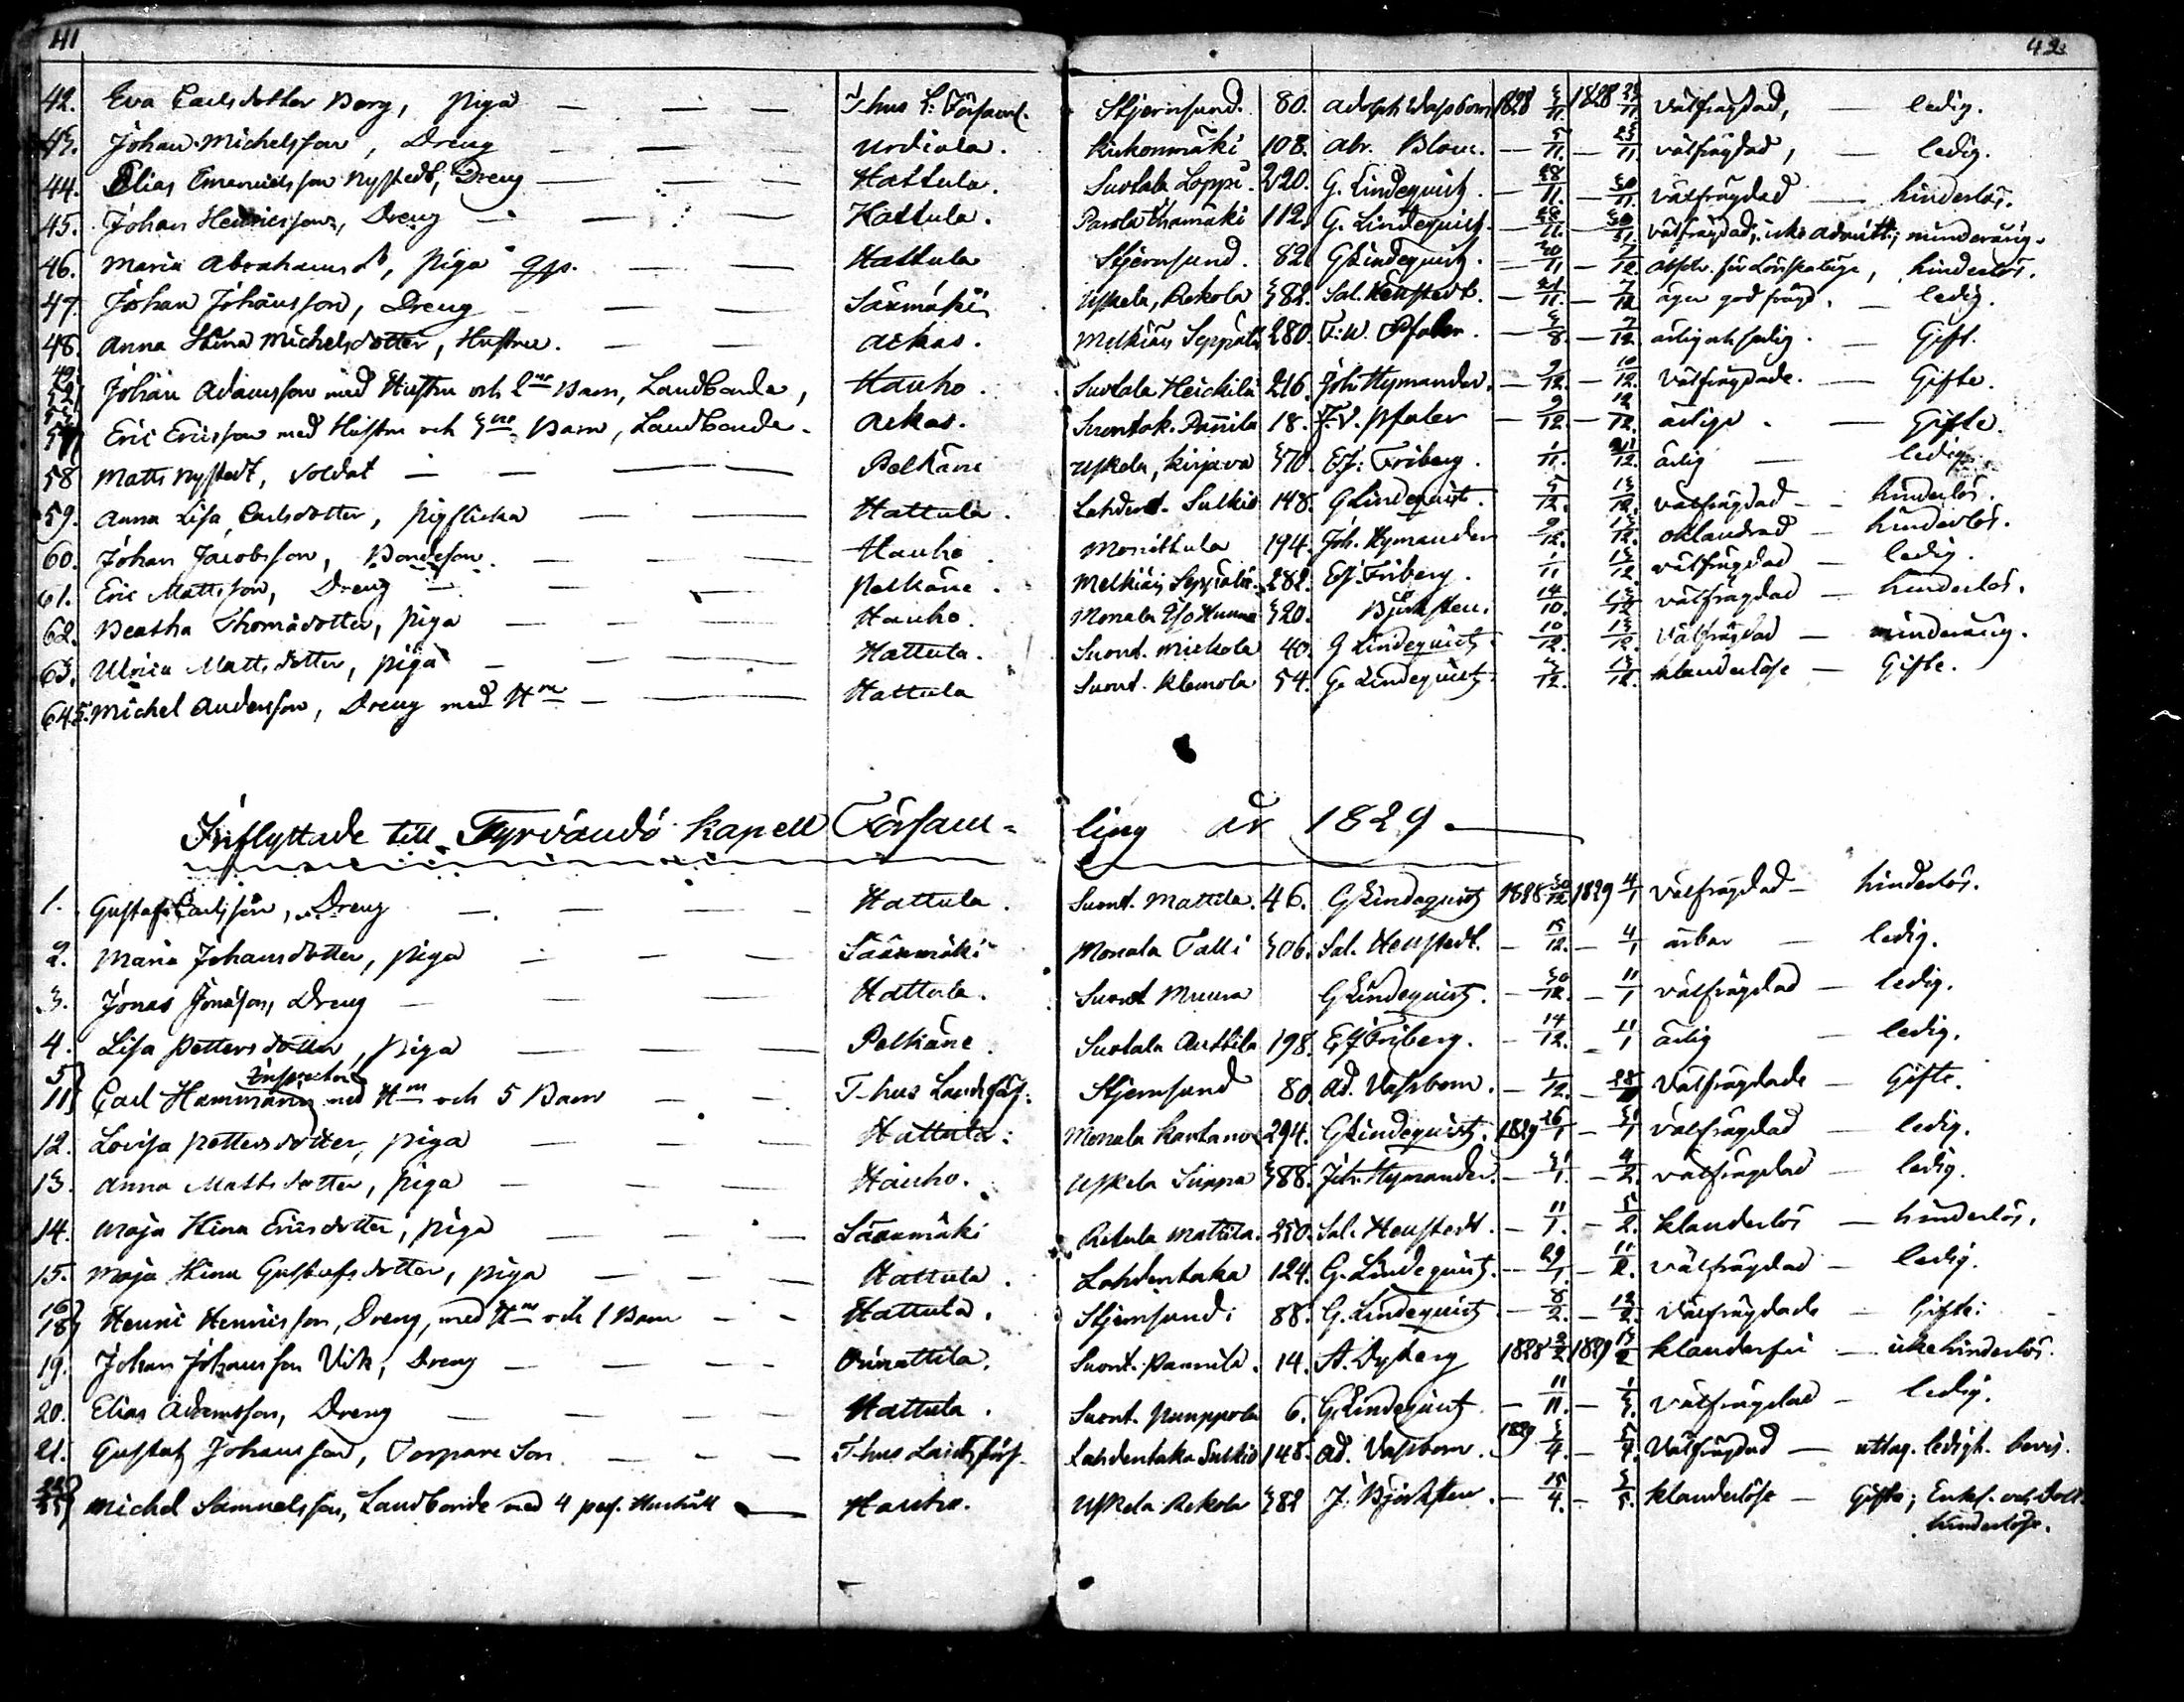 41 42.
42. Eva Carlsdotter Berg, piga — — — T-hus L: Församl. Stjernsund. 80. Adolph Wassbom 1828 3/11. 1828 23/11 välfrägdad, — ledig.
43. Johan Michelsson, Dreng — — — Urdiala. Kirkonmäki 108. Abr. Blom. — 5/11. — 23/11 välfrägdad, — ledig.
44. Elias Emanuelsson Nystedt, Dreng — — — Hattula. Suotala Loppi. 220. G. Lindequist. — 28/11. — 30/11. välfrägdad — hinderlös.
45. Johan Henricsson, Dreng — — — Hattula. Parola 112. G. Lindequist. — 28/11. — 30/11. välfrägdad, icke admitt; minderårig.
46. Maria Abrahamsdr, piga — — Hattula Stjernsund. 82. G Lindequist. — 30/11 — 7/12 absolv. för Lönskaläge, hinderlös.
47. Johan Johansson, Dreng — — — Säxmäki Uskela, Rekola 382. Sal. Henstedt. — 21/11. — 7/12 äger god frägd. — ledig.
48. Anna Stina Michelsdotter, Hustru. — — Ackas. Melkiäis Seppälä 280. F. W. Pfaler. — 3/8. — 7/12. ärlig och sedig. — Gift.
49. 52 Johan Adamsson med Hustru och 2ne Barn, Landbonde, Hauho. Suotala Heickilä 216. Joh: Hymander. — 9/12. — 10/12. välfrägdade. — Gifte.
53 57 Eric Ericsson med Hustru och 3ne Barn, Landbonde. Ackas. Suontak. Pannila 18. F. V. Pfaler — 9/12. — 12/12. ärlige. — Gifte.
58 Matts Nystedt, Soldat — — — Pelkäne Uskela, Kirjava 370. E.J: Friberg. 1/11. 12. ärlig — ledig.
59. Anna Lisa Carlsdotter, pigflicka — — Hattula. Lahdent. Sulkio 148. G Lindequist. 5/12. 13/12. välfrägdad — hinderlös.
60. Johan Jacobsson, Bondeson. — — Hauho. Monittula 194. Joh. Hymander 9/12. 13/12. oklandrad — hinderlös.
61. Eric Mattsson, Dreng — — Pelkäne. Melkiäis Seppälä. 282. EJ Friberg. 1/11 13/12 välfrägdad — ledig.
62. Beatha Thomasdotter, piga — — — Hauho. Monala Iso Hunna 320. Björksten. 14/10. 13/12 välfrägdad — hinderlös.
63. Ulrica Mattsdotter, piga — — — Hattula. Suont. Mickola 40. G Lindequist. 10/12. 13/12. välfrägdad — minderårig.
64 5. Michel Andersson, Dreng med Hru — — Hattula Suont. Klemola 54. G. Lindequist. 3/12. 13/12. klanderlöse — Gifte.
Inflyttade till Tyrvändö Kapell Församling år 1829 —
1. Gustaf Carlsson, Dreng — — — Hattula. Suont. Mattila. 46. G Lindequist 1828 30/12 1829 4/1 välfrägdad — hinderlös.
2. Maria Johansdotter, piga — — — Sääxmäki Monala Talli 306. Sal. Henstedt. — 15/12. — 4/1 ärbar — ledig.
3. Jonas Jonasson, Dreng — — — Hattula. Suont Muura G Lindequist. — 30/12. — 11/1 välfrägdad — ledig.
4. Lisa Pettersdotter, piga — — — Pelkäne. Suotala Anttila 198. EJ Friberg. — 14/12. — 11/1 ärlig — ledig.
5 11 Inspector Carl Hammarén med Hru och 5 Barn — — T-hus Landsförs. Stjernsund 80. Ad. Wassbom. — 1/12. — 28/1 Välfrägdade — Gifte.
12. Lovisa Pettersdotter, piga — — — Hattula. Monala Kartano 294. G Lindequist. 1829 26/1 — 31/1 välfrägdad — ledig.
13. Anna Mattsdotter, piga — — — Hauho. Uskela Suppa 388. Joh. Hymander. — 31/1. — 4/2 välfrägdad — ledig.
14. Maja Stina Ericsdotter, piga — — — Sääxmäki Retula Mattila. 250. Sal. Henstedt. — 11/1. — 5/2. klanderlös — hinderlös.
15. Maja Stina Gustafsdotter, piga — — — Hattula. Lahdentaka 124. G. Lindequist. — 29/1. — 11/2. välfrägdad — ledig.
16 18 Henric Henricsson, Dreng, med Hru och 1 Barn — — Hattula. Stjernsund. 88. G. Lindequist — 8/2. — 12/2. välfrägdade — Gifte.
19. Johan Johansson Vik, Dreng — — — Orimattila. Suont. Pannila. 14. A. Dyberg 1828 2/2 1829 15/2 klanderfri — icke hinderlös.
20. Elias Adamsson, Dreng — — — Hattula. Suont. Punppola 6. G. Lindequist — 11/11. — 1/3. välfrägdad — ledig.
21. Gustaf Johansson, Torpare Son — — — T-hus Landsförs. Lahdentaka Sulkio 148. Ad. Wassbom. 1829 3/4. — 5/4. Välfrägdad — uttag. ledigh. bevis.
22 25 Michel Samuelsson, Landbonde med 4 pers. Hushåll — Hauho. Uskela Rekola 382 J. Björksten. — 15/4. — 3/5. klanderlöse — Gifte; Enkl. och Dott. hinderlöse.